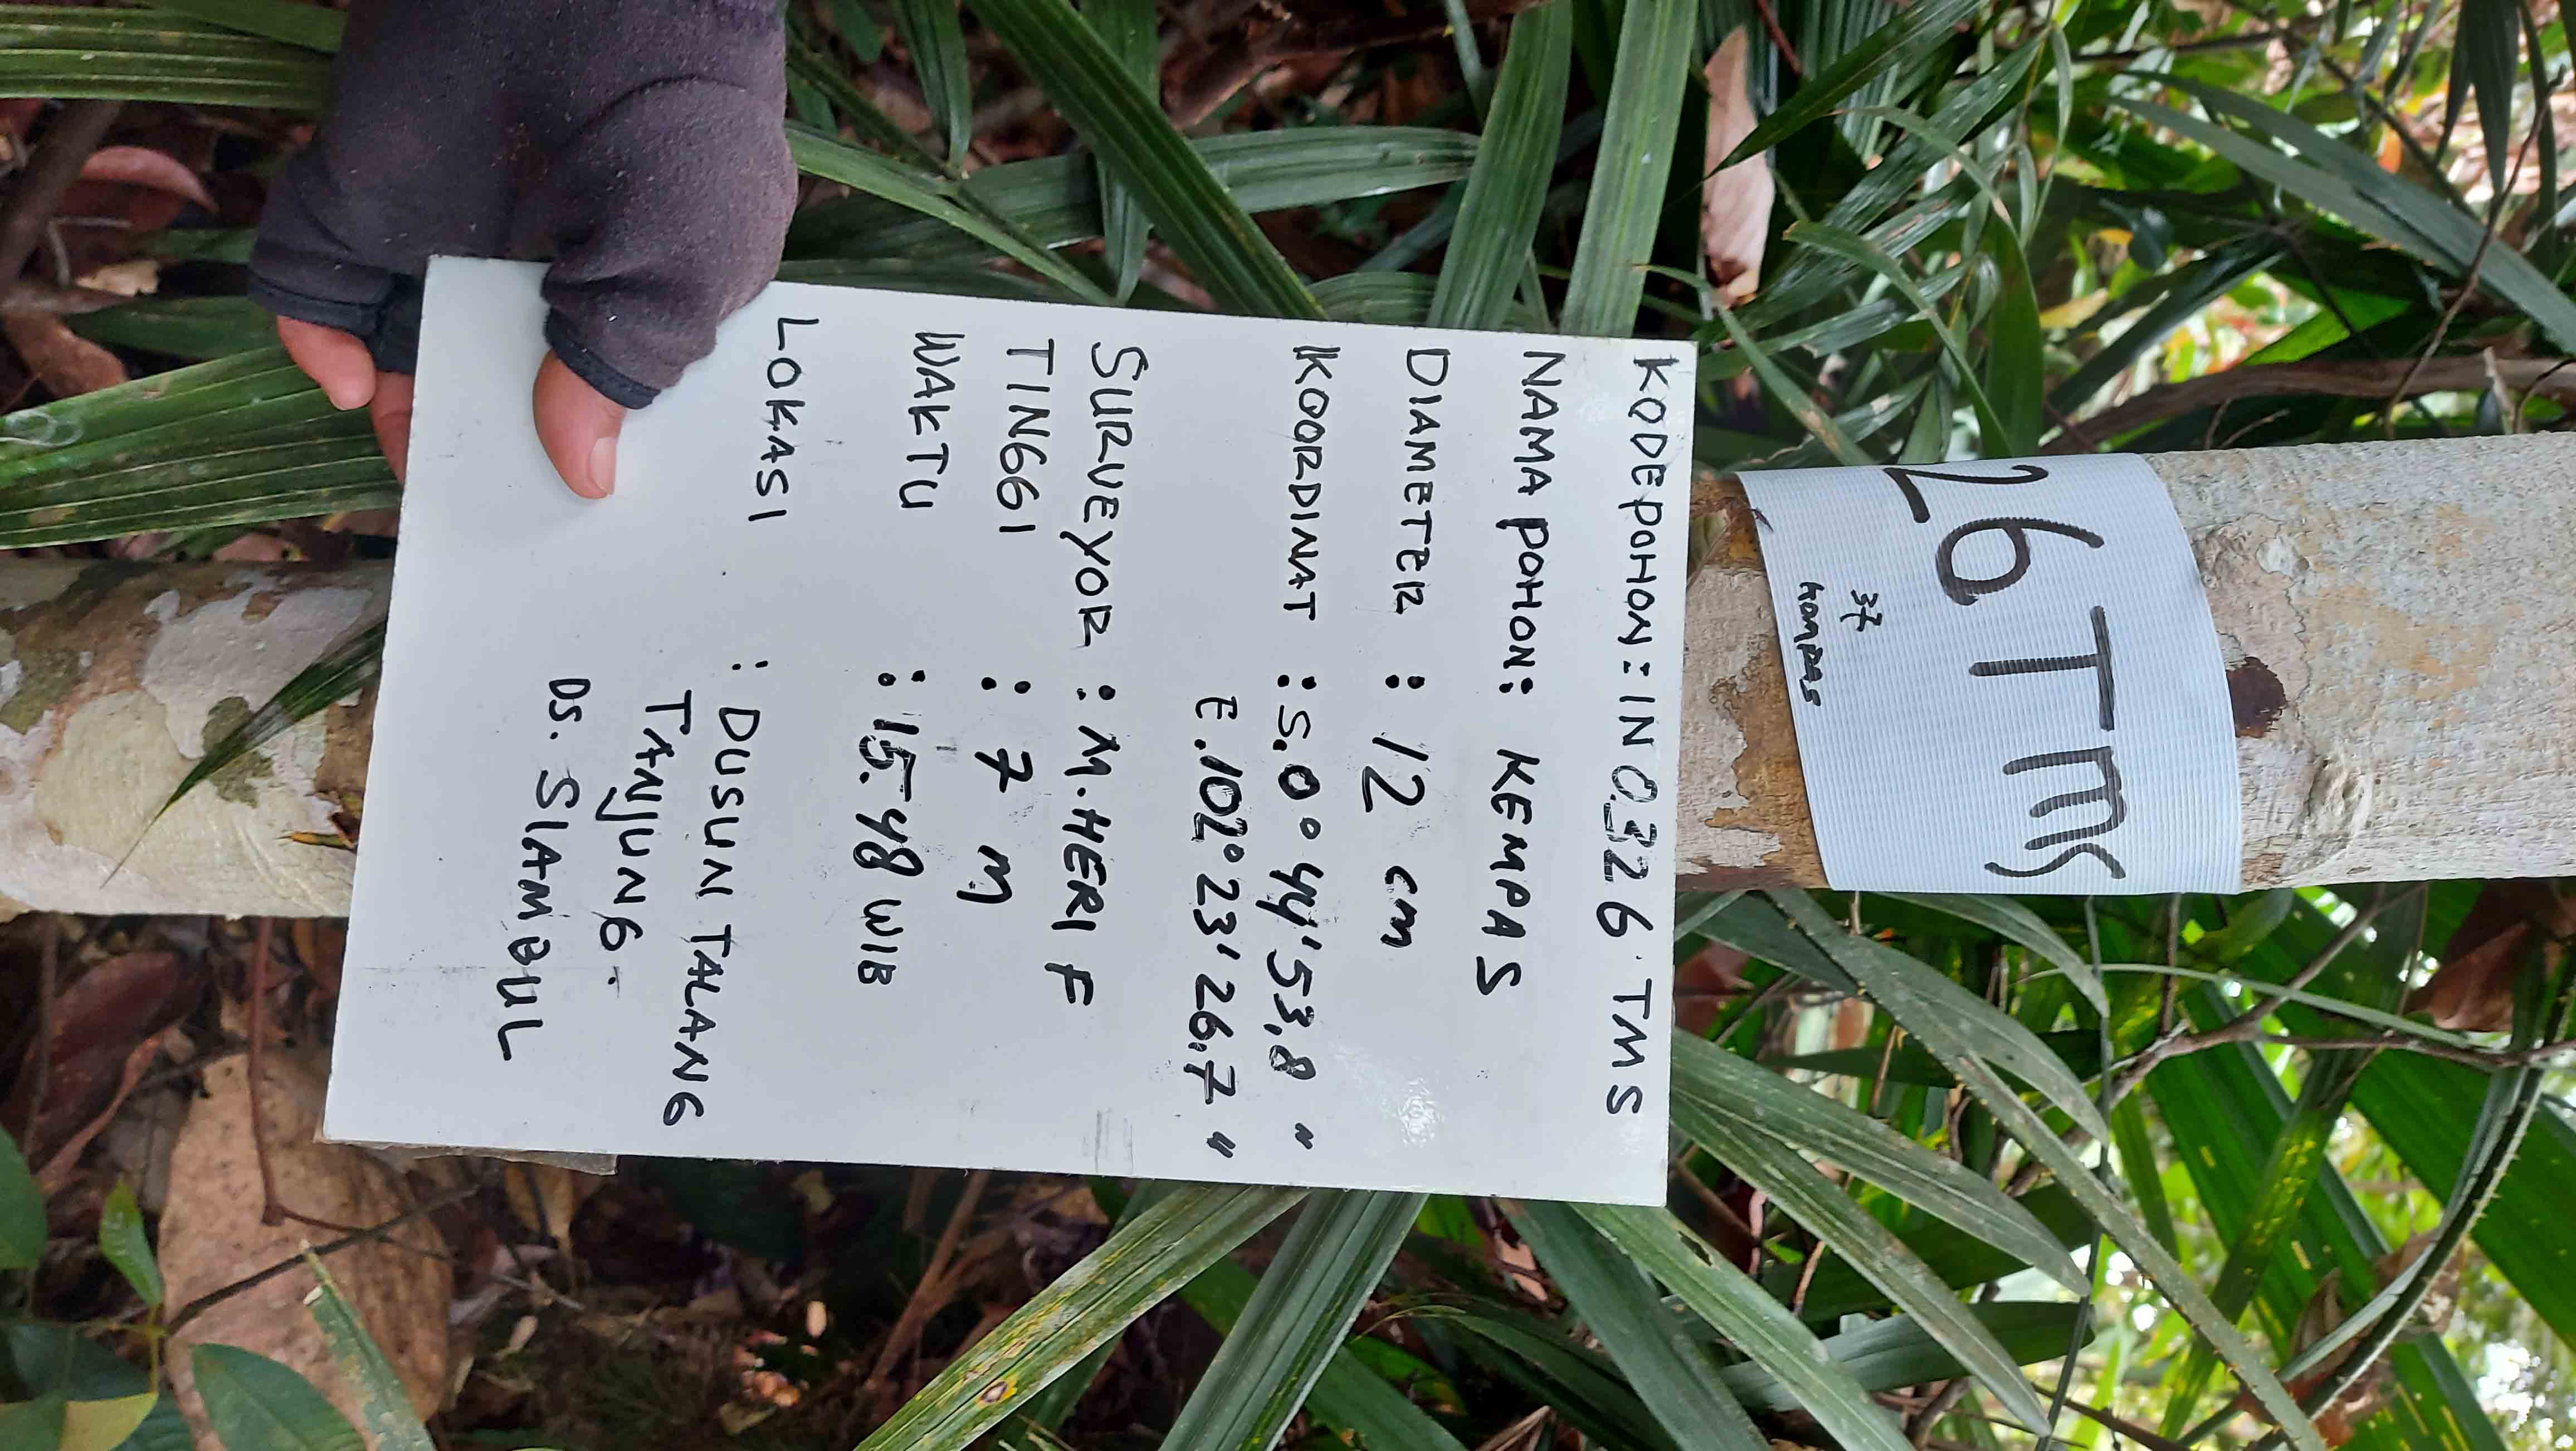 26 TMS
37
Kompas
KODE POHON : IN 0326 TMS
NAMA POHON : KEMPAS
DIAMETER : 12 cm
KOORDINAT : S.0° 44' 53,8 "
E.102° 23' 26,7 "
SURVEYOR : M. HERI F
TINGGI : 7 M
WAKTU : 15.48 WIB
LOKASI : DUSUN TALANG
TANJUNG.
DS. SIAMBUL